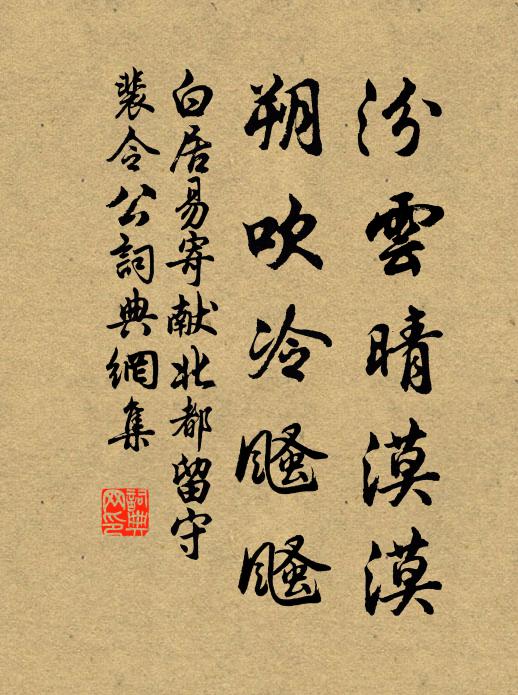 汾雲晴漠漠
朔吹冷飋飋
白居易寄献北都留守
裴令公詞典網集
詞典网印